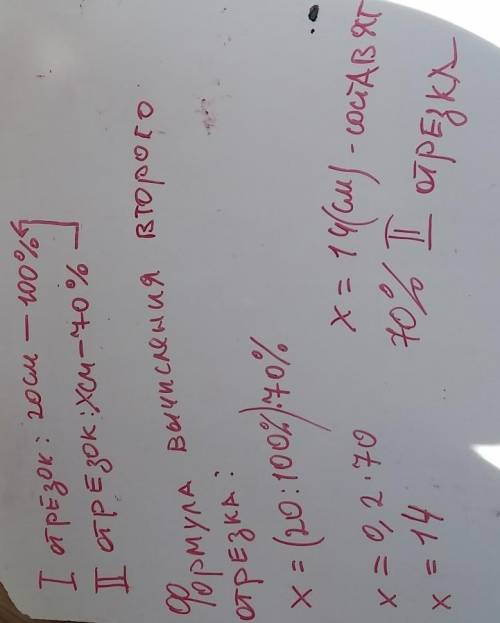 I отрезок: 20см – 100%
II отрезок: хсм – 70%
Формула вычисления второго
отрезка:
х = (20:100%)·70%
х = 0,2·70
х = 14
х = 14(см) - составят
70% II отрезка